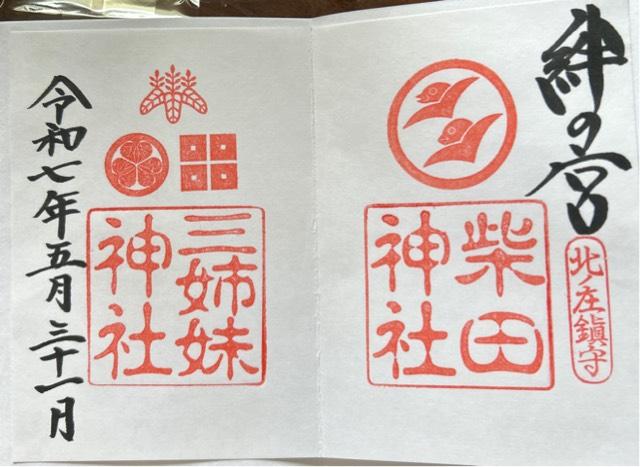 絆の宮
北ノ庄鎮守
柴田
神社
三姉妹
神社
令和七年五月三十一日